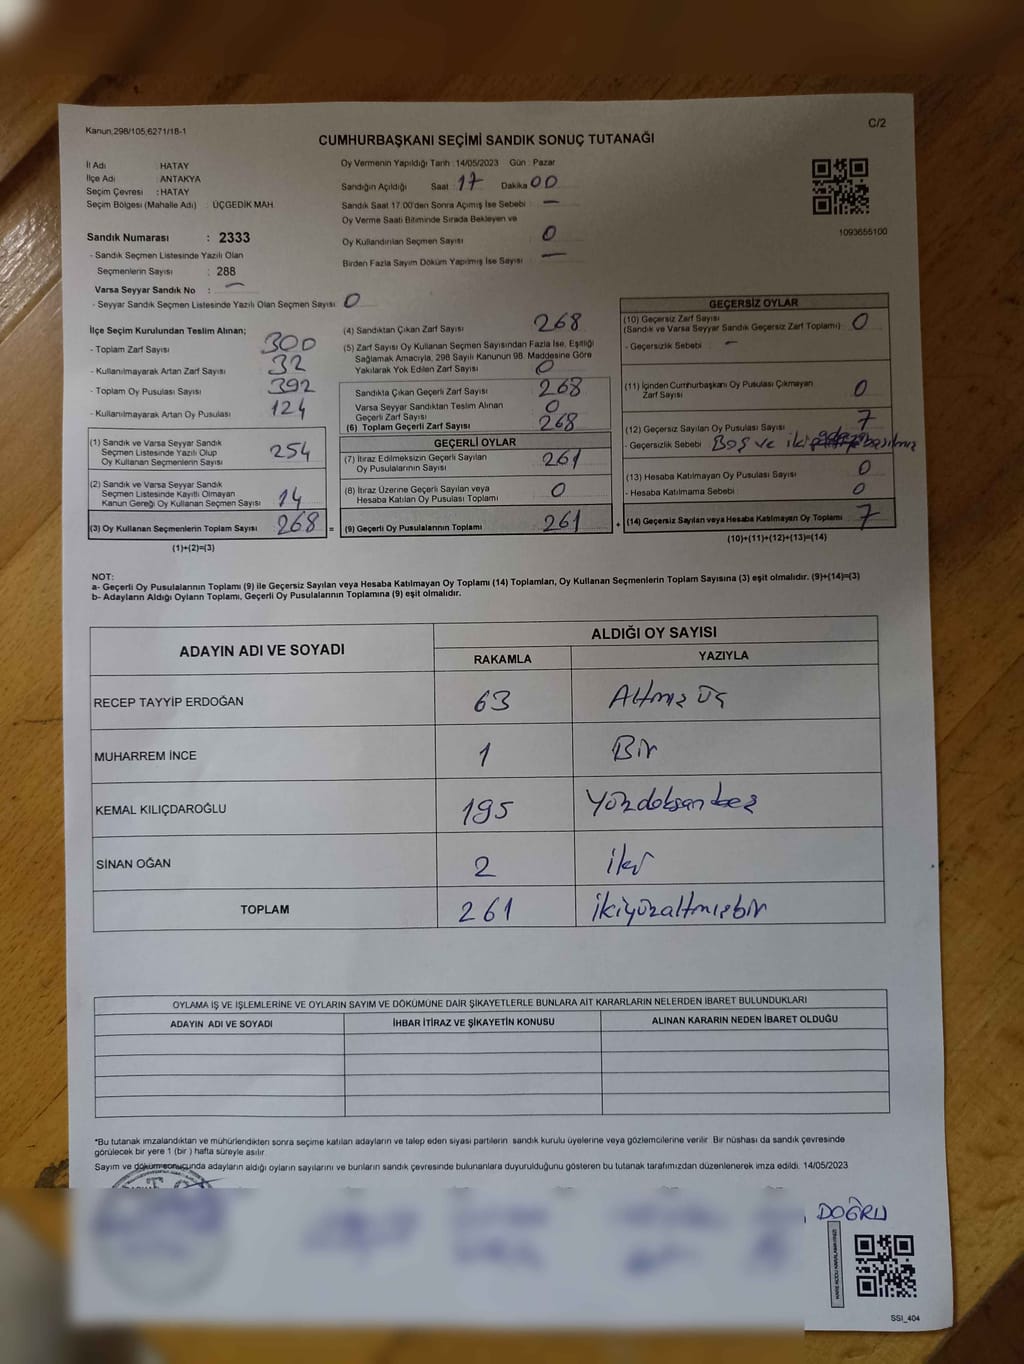 Kanun.298/105,6271/18-1
C/2
CUMHURBAŞKANI SEÇİMİ SANDIK SONUÇ TUTANAĞI
İl Adı : HATAY
İlçe Adı : ANTAKYA
Seçim Çevresi : HATAY
Seçim Bölgesi (Mahalle Adı) : ÜÇGEDİK MAH.
Sandık Numarası : 2333
- Sandık Seçmen Listesinde Yazılı Olan
Seçmenlerin Sayısı : 288
Varsa Seyyar Sandık No : —
- Seyyar Sandık Seçmen Listesinde Yazılı Olan Seçmen Sayısı 0
Oy Vermenin Yapıldığı Tarih : 14/05/2023 Gün : Pazar
Sandığın Açıldığı Saat : 17 Dakika 00
Sandık Saat 17.00'den Sonra Açımış İse Sebebi : —
Oy Verme Saati Bitiminde Sırada Bekleyen ve
Oy Kullandırılan Seçmen Sayısı 0
Birden Fazla Sayım Döküm Yapılmış İse Sayısı : —
1093655100
İlçe Seçim Kurulundan Teslim Alınan;
- Toplam Zarf Sayısı 300
- Kullanılmayarak Artan Zarf Sayısı 32
- Toplam Oy Pusulası Sayısı 392
- Kullanılmayarak Artan Oy Pusulası 124
(1) Sandık ve Varsa Seyyar Sandık
Seçmen Listesinde Yazılı Olup
Oy Kullanan Seçmenlerin Sayısı 254
(2) Sandık ve Varsa Seyyar Sandık
Seçmen Listesinde Kayıtlı Olmayan
Kanun Gereği Oy Kullanan Seçmen Sayısı 14
(3) Oy Kullanan Seçmenlerin Toplam Sayısı 268 =
(1)+(2)=(3)
(4) Sandıktan Çıkan Zarf Sayısı 268
(5) Zarf Sayısı Oy Kullanan Seçmen Sayısından Fazla İse, Eşitliği
Sağlamak Amacıyla, 298 Sayılı Kanunun 98. Maddesine Göre
Yakılarak Yok Edilen Zarf Sayısı 0
Sandıkta Çıkan Geçerli Zarf Sayısı 268
Varsa Seyyar Sandıktan Teslim Alınan
Geçerli Zarf Sayısı 0
(6) Toplam Geçerli Zarf Sayısı 268
GEÇERLİ OYLAR
(7) İtiraz Edilmeksizin Geçerli Sayılan
Oy Pusulalarının Sayısı 261
(8) İtiraz Üzerine Geçerli Sayılan veya
Hesaba Katılan Oy Pusulası Toplamı 0
(9) Geçerli Oy Pusulalarının Toplamı 261 +
GEÇERSİZ OYLAR
(10) Geçersiz Zarf Sayısı
(Sandık ve Varsa Seyyar Sandık Geçersiz Zarf Toplamı) 0
- Geçersizlik Sebebi : —
(11) İçinden Cumhurbaşkanı Oy Pusulası Çıkmayan
Zarf Sayısı 0
(12) Geçersiz Sayılan Oy Pusulası Sayısı 7
- Geçersizlik Sebebi : Boş ve iki basılmış
(13) Hesaba Katılmayan Oy Pusulası Sayısı 0
- Hesaba Katılmama Sebebi : 0
(14) Geçersiz Sayılan veya Hesaba Katılmayan Oy Toplamı 7
(10)+(11)+(12)+(13)=(14)
NOT:
a- Geçerli Oy Pusulalarının Toplamı (9) ile Geçersiz Sayılan veya Hesaba Katılmayan Oy Toplamı (14) Toplamları, Oy Kullanan Seçmenlerin Toplam Sayısına (3) eşit olmalıdır. (9)+(14)=(3)
b- Adayların Aldığı Oyların Toplamı, Geçerli Oy Pusulalarının Toplamına (9) eşit olmalıdır.
ADAYIN ADI VE SOYADI
ALDIĞI OY SAYISI
RAKAMLA YAZIYLA
RECEP TAYYİP ERDOĞAN 63 Altmış üç
MUHARREM İNCE 1 Bir
KEMAL KILIÇDAROĞLU 195 Yüzdoksanbeş
SİNAN OĞAN 2 iki
TOPLAM 261 ikiyüzaltmışbir
OYLAMA İŞ VE İŞLEMLERİNE VE OYLARIN SAYIM VE DÖKÜMÜNE DAİR ŞİKAYETLERLE BUNLARA AİT KARARLARIN NELERDEN İBARET BULUNDUKLARI
ADAYIN ADI VE SOYADI İHBAR İTİRAZ VE ŞİKAYETİN KONUSU ALINAN KARARIN NEDEN İBARET OLDUĞU
*Bu tutanak imzalandıktan ve mühürlendikten sonra seçime katılan adayların ve talep eden siyasi partilerin sandık kurulu üyelerine veya gözlemcilerine verilir. Bir nüshası da sandık çevresinde
görülecek bir yere 1 (bir ) hafta süreyle asılır.
Sayım ve döküm sonucunda adayların aldığı oyların sayılarını ve bunların sandık çevresinde bulunanlara duyurulduğunu gösteren bu tutanak tarafımızdan düzenlenerek imza edildi. 14/05/2023
DOĞRU
SSI_404